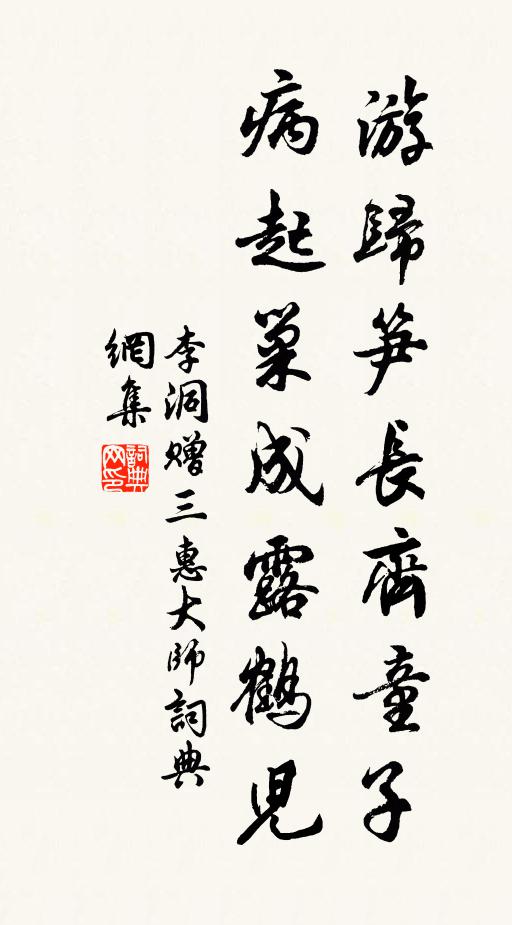 游歸笋長齊童子
病起巢成露鶴兒
李洞贈三惠大師詞典
網集
詞典网印